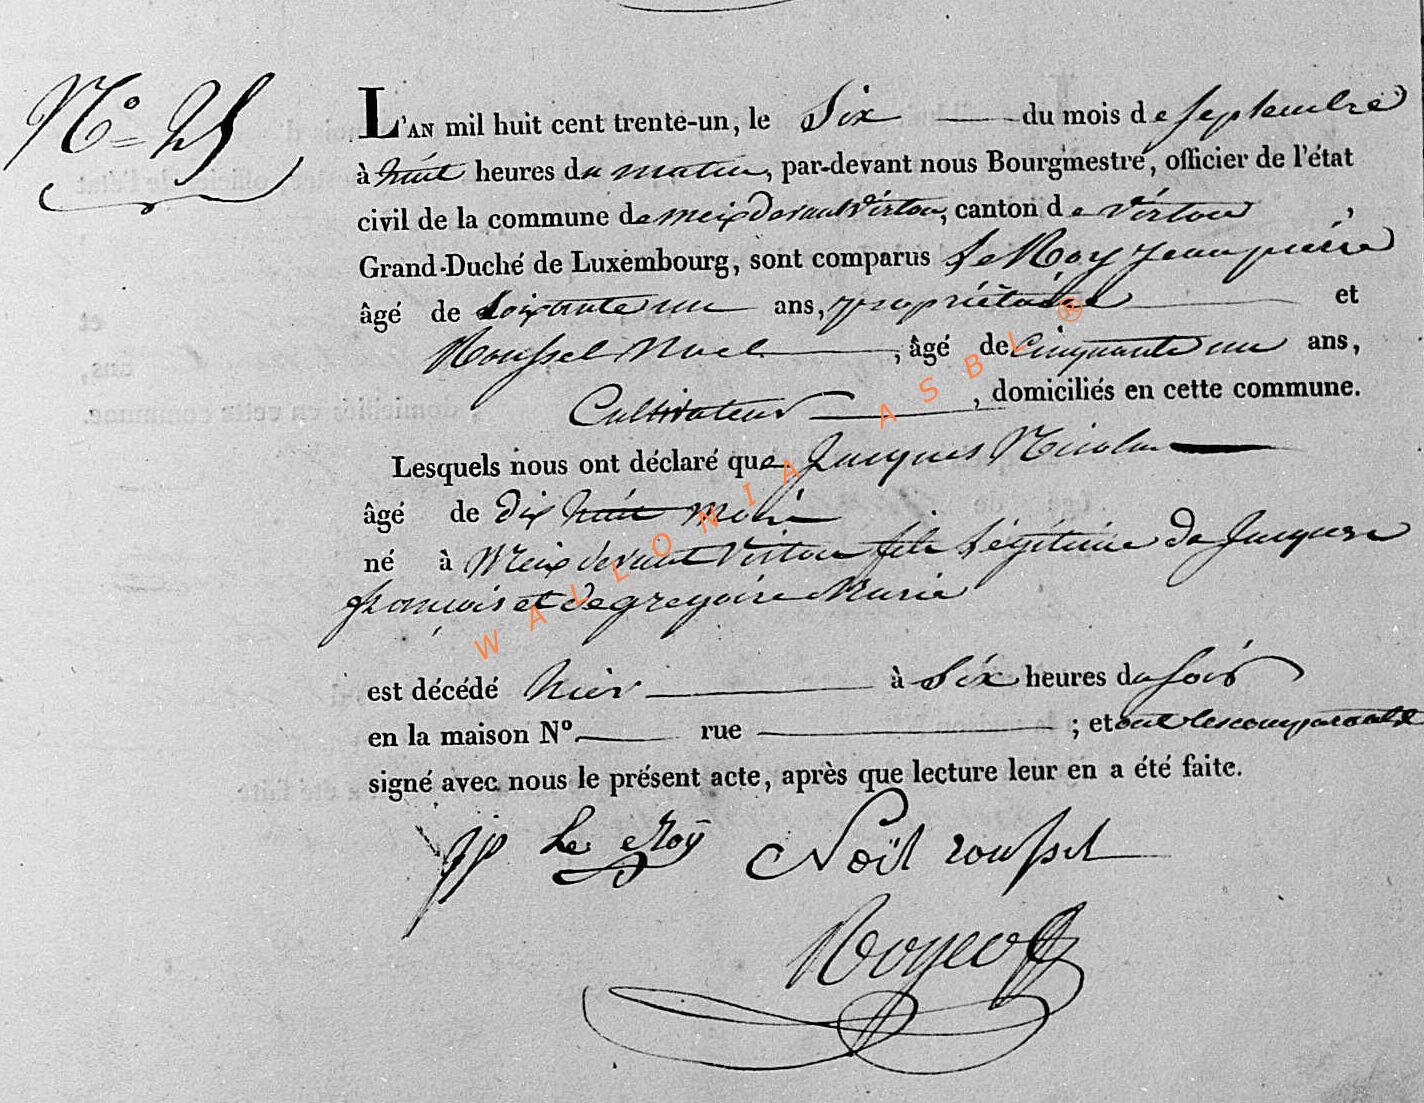 N° 25
L'AN mil huit cent trente-un, le Six du mois de Septembre
à huit heures du matin, par-devant nous Bourgmestre, officier de l'état
civil de la commune de meix devant Virton, canton de Virton,
Grand-Duché de Luxembourg, sont comparus Le Roy Jean pierre
âgé de Soixante un ans, propriétaire et
Roussel Noel, âgé de Cinquante un ans,
Cultivateur, domiciliés en cette commune.
Lesquels nous ont déclaré que Jacques Nicolas
âgé de dix huit mois
né à Meix devant Virton fils Légitime de Jacques
françois et de gregoire Marie
est décédé hier à Six heures du soir
en la maison N° rue ; et ont les comparants
signé avec nous le présent acte, après que lecture leur en a été faite.
JP Le Roÿ Noël roussel
WALLONIA ASBL ®